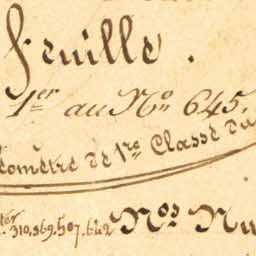 feuille.
1er au No 645.
éomètre de 1re Classe du
ter 310,369,507,642 Nos Nu